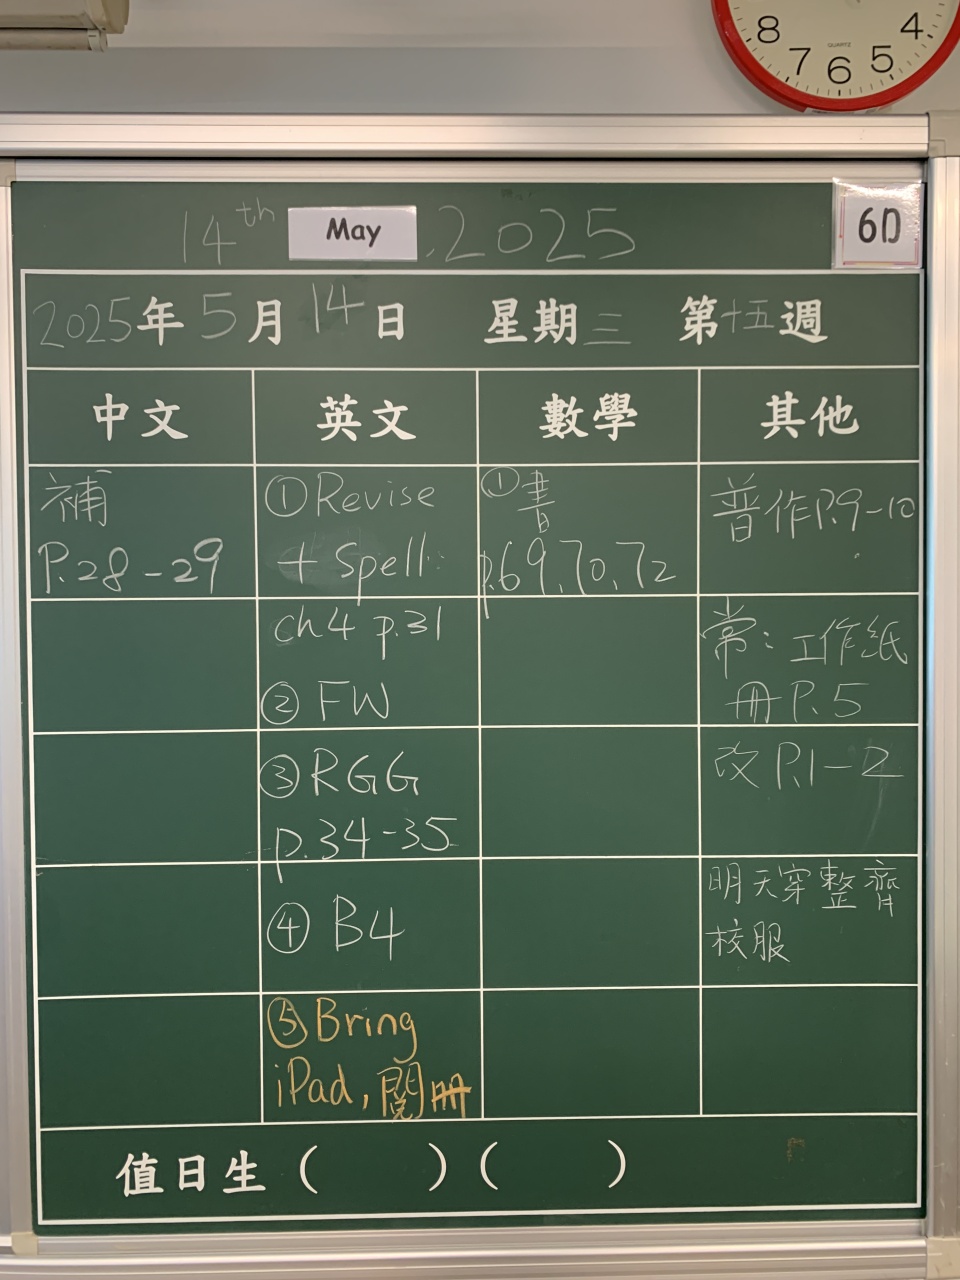 8 7 6 5 4
QUARTZ
14th May, 2025
6D
2025年5月14日 星期三 第十五週
中文 英文 數學 其他
補
P.28-29
①Revise
+ Spell:
ch4 p.31
② FW
③ RGG
p.34-35
④ B4
⑤ Bring
iPad, 閱冊
①書
p.69, 70, 72
普作P.9-10
常:工作紙
冊P.5
改P.1-2
明天穿整齊
校服
值日生( )( )